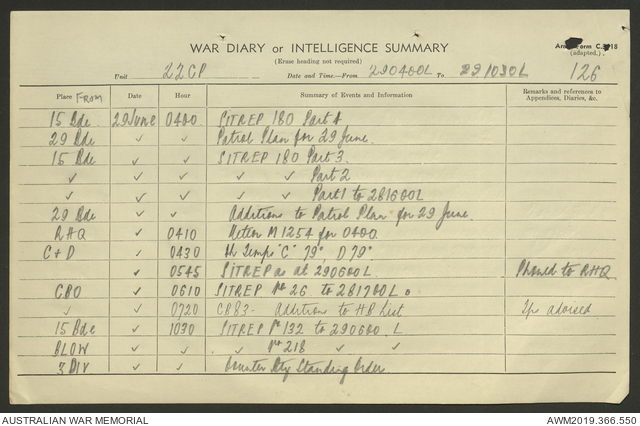 WAR DIARY or INTELLIGENCE SUMMARY
Army Form C.2118
(Erase heading not required)
(adapted.)
Unit 22CP Date and Time.—From 290400L To 291030L 126
Place From Date Hour Summary of Events and Information Remarks and references to Appendices, Diaries, &c.
15 Bde 29 June 0400 SITREP 180 Part 4
29 Bde ✓ ✓ Patrol Plan for 29 June.
15 Bde ✓ ✓ SITREP 180 Part 3.
✓ ✓ ✓ ✓ ✓ Part 2
✓ ✓ ✓ ✓ ✓ Part 1 to 281600L
29 Bde ✓ ✓ Additions to Patrol Plan for 29 June.
RHQ ✓ 0410 Meteor M1254 for 0400.
C+D ✓ 0430 Temps "C" 79°, D 79°.
✓ 0545 SITREP as at 290600L Phoned to RHQ
CBO ✓ 0610 SITREP No 26 to 281700L
✓ ✓ 0720 CB83- Additions to HB List advised
15 Bde ✓ 1030 SITREP No 132 to 290600 L
BLOW ✓ ✓ ✓ No 218 ✓ ✓
3 DIV ✓ ✓ Counter Bty Standing Order
AUSTRALIAN WAR MEMORIAL AWM2019.366.550